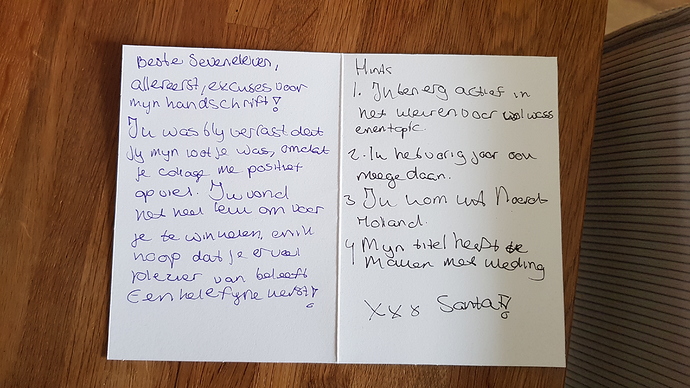 Beste Seveneleven,
allereerst, excuses voor
mijn handschrift!
Ik was blij verrast dat
jij mijn lootje was, omdat
je collage me positief
opviel. Ik vond
het heel leuk om voor
je te winkelen, en ik
hoop dat je er veel
plezier van beleeft
Een hele fijne kerst!
Hints
1. Ik ben erg actief in
het kleuren voor volwass
enen topic.
2. Ik heb vorig jaar ook
meegedaan.
3 Ik kom uit Noord-
Holland.
4 Mijn titel heeft te
Maken met kleding
xxx Santa!